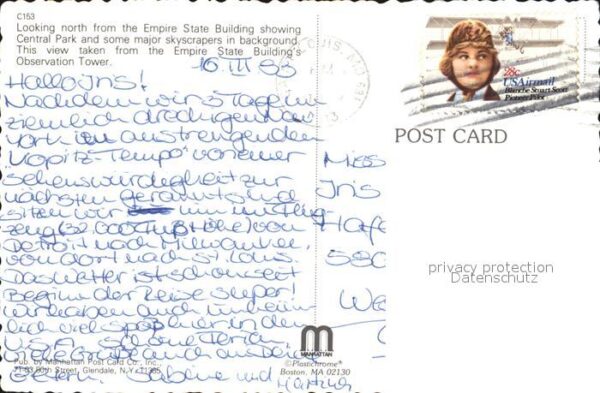 C153
Looking north from the Empire State Building showing
Central Park and some major skyscrapers in background.
This view taken from the Empire State Building's
Observation Tower.
Hallo Iris!
Nachdem wir 3 Tage im
ziemlich dreckigen New
York im anstrengenden
"Kopitz-Tempo" von einer
Sehenswürdigkeit zur
nächsten gerannt sind
sitzen wir nun im Flug-
zeug (32.000 Fuß Höhe) von
Detroit nach Milwaukee,
von dort nach St. Louis.
Das Wetter ist schon seit
Beginn der Reise super!
Wir haben auch unheim-
lich viel Spaß hier in den
U.S.A. Schöne Ferien,
viele Grüße auch an Deine
Eltern, Sabine und
Pub. by Manhattan Post Card Co., Inc.
Street, Glendale, N.Y. 11385
MANHATTAN
©Plastichrome®
Boston, MA 02130
28c
USAirmail
Blanche Stuart Scott
Pioneer Pilot
POST CARD
Miss
Iris
Hafe
580
We
privacy protection
Datenschutz